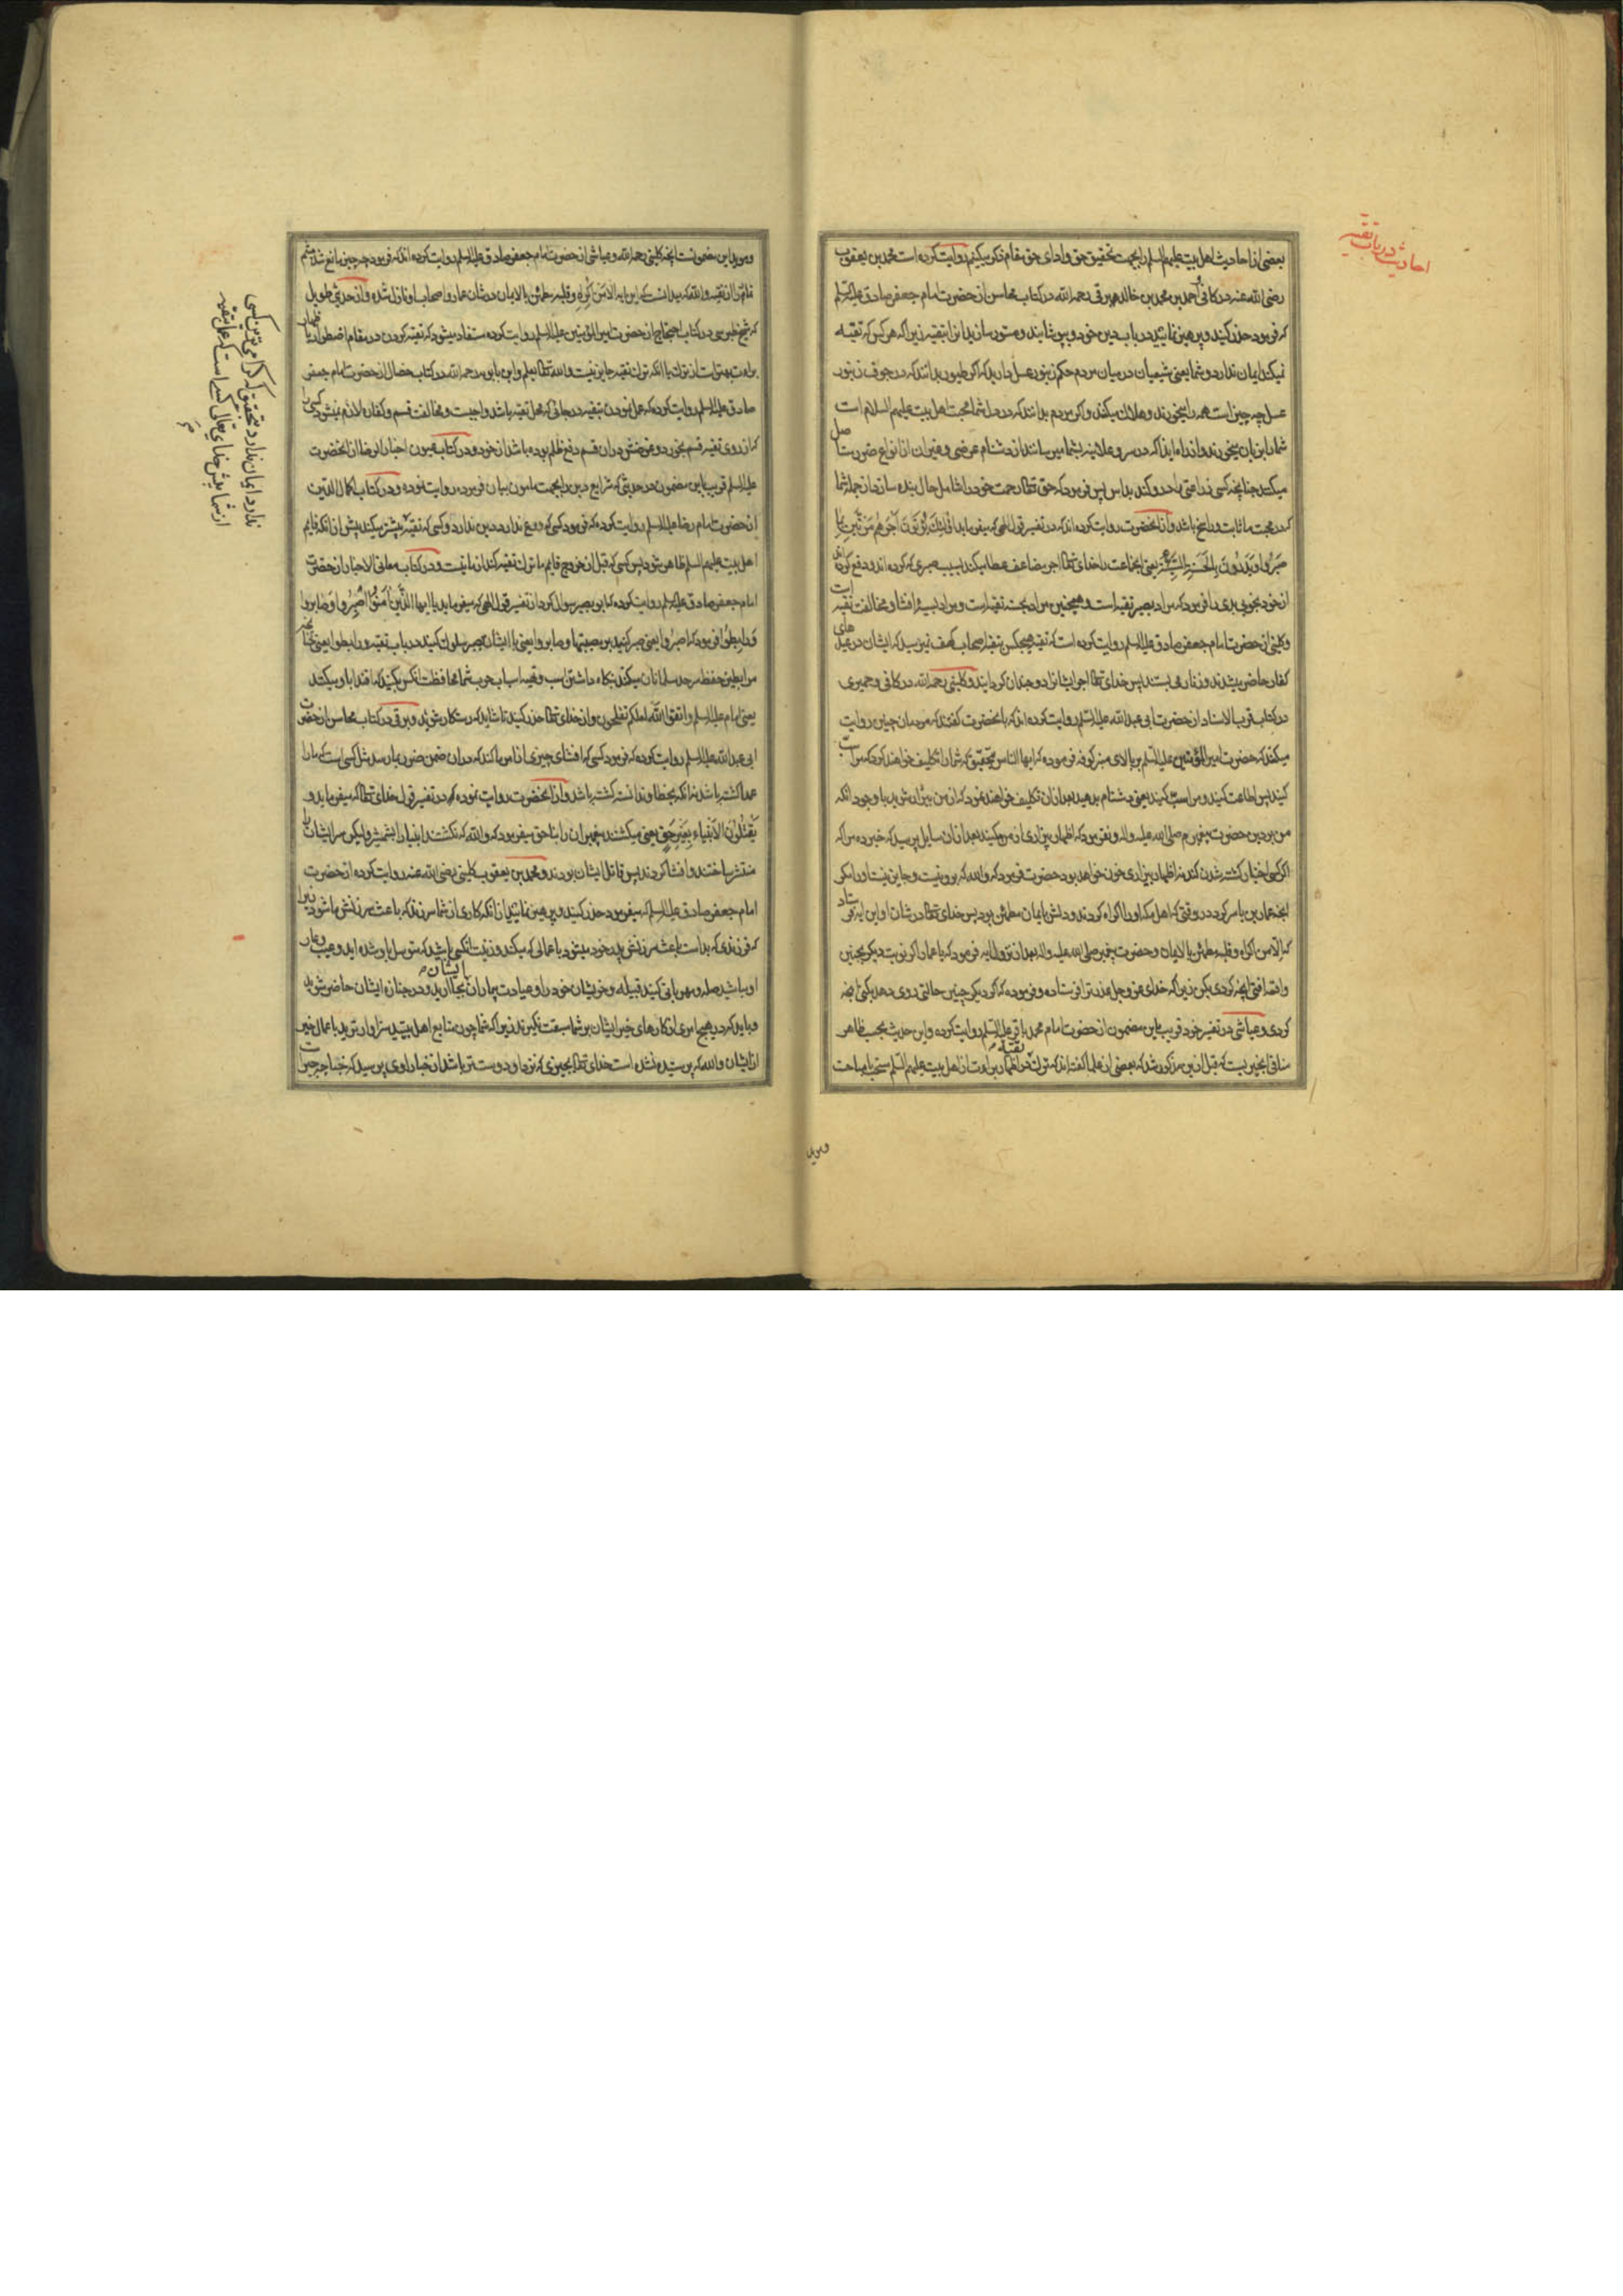 احادیث در باب تقیه
بعضی از احادیث اهل بیت علیهم السلم را بجهت تحقیق حق و ادای حق مقام ذکر میکنیم روایت کرده است محمد بن یعقوب
رضی الله عنه در کافی و احمد بن محمد بن خالد برقی رحمه الله در کتاب محاسن از حضرت امام جعفر صادق علیه السلم
که فرمود حذر کنید و پرهیز نمائید در باب دین خود و بپوشانید و مستور سازید انرا بتقیه زیرا که هر کس که تقیه
نمیکند ایمان ندارد و شما یعنی شیعیان در میان مردم حکم زنبور عسل دارید که اگر طیور بدانند که در جوف زنبور
عسل چه چیز است همه را میخورند و هلاک میکنند و اکر مردم بدانند که در دل شما محبت اهل بیت علیهم السلام است
شما را بزبان میخورند و انداه ابدا که در سر و علانیه بشما میرسانند از دشنام عرضی و غیر ان از انواع ضرر حاصل
میکنند چنانچه کسی زراعتی را درو کند بداس پس فرمود که حق تعالی رحمت خود را شامل حال بنده سازد از جمله شما
که در محبت ما ثابت و راسخ باشد و از انحضرت روایت کرده اند که در تفسیر قول الهی که میفرماید اُولئِكَ يُؤْتَوْنَ اَجْرَهُمْ مَرَّتَيْنِ بِمَا
صَبَرُوا وَيَدْرَؤُنَ بِالْحَسَنَةِ السَّيِّئَةَ یعنی انجماعت را خدای تعالی اجر مضاعف عطا میکند بسبب صبری که کرده اند و دفع کرده اند
از خود بخوبی بدی را فرمود که مراد بصبر تقیه است و همچنین مراد بحسنه تقیه است و مراد بسیئه افشا و مخالفت تقیه است
و کلینی از حضرت امام جعفر صادق علیه السلم روایت کرده است که تقیه هیچکس بتقیه اصحاب کهف نمیرسید که ایشان در عیدهای
کفار حاضر میشدند و زنار می بستند پس خدای تعالی اجر ایشانرا دو چندان کردانید و کلینی رحمه الله در کافی و حمیری
در کتاب قرب الاسناد از حضرت ابی عبد الله علیه السلم روایت کرده اند که بانحضرت کفتند که مردمان چنین روایت
میکنند که حضرت امیر المؤمنین علیه السلم بر بالای منبر کوفه فرموده که ایها الناس بتحقیق که شما را تکلیف خواهند کرد که مرا سب
کنید پس اطاعت کنید و مرا سب کنید یعنی دشنام بدهید بعد از ان تکلیف خواهند نمود که از من بیزار شوید با وجود انکه
من بر دین حضرت پیغمبرم صلی الله علیه و اله و نفرمود که اظهار بیزاری از من مکنید بعد از ان سایل پرسید که خبر ده مرا که
اکر کسی اختیار کشته شدن کند نه اظهار بیزاری خون خواهد بود حضرت فرمود که والله که بر او نیست و جایز نیست او را مکر
انچه عمار بن یاسر کرد در وقتی که اهل مکه او را اکراه کردند و دلش بایمان مطمئن بود پس خدای تعالی در شان او این ایه فرستاد
که اِلّا مَن اُکره و قلبه مطمئن بالایمان و حضرت پیغمبر صلی الله علیه و اله بعد از نزول ایه فرمود که یا عمار اکر نوبت دیکر همچنین
واقعه افتد انچه کردی بکن زیرا که خدای عز و جل عذر ترا فرستاده و فرموده که اکر دیکر چنین حالتی روی دهد بکنی انچه
کردی و عیاشی در تفسیر خود قریب باین مضمون از حضرت امام محمد باقر علیه السلم روایت کرده و این حدیث بحسب ظاهر
منافی بخبریست که قبل ازین مذکور شد که بعضی از علما کفته اند که ترک تقیه در اظهار براءت از اهل بیت علیهم السلم مستحب یا مباحست
ومؤید
ومؤید این مضمونست انچه کلینی رحمه الله و عیاشی از حضرت امام جعفر صادق علیه السلم روایت کرده اند که فرمود چه چیز مانع شد میثم
تمار را از تقیه والله که میدانست که این ایه الا من اُکره و قلبه مطمئن بالایمان در شان عمار و اصحاب او نازل شده و از حدیثی طویل
که شیخ طبرسی در کتاب احتجاج از حضرت امیر المؤمنین علیه السلم روایت کرده مستفاد میشود که تقیه کردن در مقام اضطرار با اظهار
براءت بهتر است از ترک یا انکه ترک تقیه جایز نیست والله تعالی یعلم و ابن بابویه رحمه الله در کتاب خصال از حضرت امام جعفر
صادق علیه السلم روایت کرده که عمل نمودن بتقیه در جائی که محل تقیه باشد واجبست و مخالفت قسم و کفاره لازم نمیشود کسی را
که از روی تقیه قسم بخورد و غرضش در ان قسم دفع ظلم بوده باشد از خود و در کتاب عیون اخبار الرضا از انحضرت
علیه السلم قریب باین مضمون در حدیثی که شرایع دین را بجهت مامون بیان فرموده روایت نموده و در کتاب اکمال الدین
از حضرت امام رضا علیه السلم روایت کرده که فرمود کسی که ورع ندارد دین ندارد و کسی که تقیه پیشتر میکند پیش از انکه قایم
اهل بیت علیهم السلم ظاهر شود پس کسی که قبل از خروج قایم ما ترک تقیه کند از ما نیست و در کتاب معانی الاخبار از حضرت
امام جعفر صادق علیه السلم روایت کرده که ابو بصیر سوال کرد از تفسیر قول الهی که میفرماید یا ایها الَّذینَ اٰمَنُوا اصْبِرُوا وَ صَابِرُوا
وَ رَابِطُوا فرمود که اصبروا یعنی صبر کنید بر مصیبتها و صابروا یعنی با ایشان بصبر سلوک کنید در باب تقیه و رابطوا یعنی چنانچه
مرابطین حفظ سرحد مسلمانان میکنند بنکاه داشتن اسب و تهیه اسباب حرب شما محافظت انکس بکنید که اقتدا باو میکنند
یعنی امام علیه السلم و اتقوا الله لعلکم تفلحون و از خدای تعالی حذر کنید تا شاید که رستکار شوید و برقی در کتاب محاسن از حضرت
ابی عبد الله علیه السلم روایت کرده که فرمود کسی که افشای چیزی از امر ما کند که در ان ضمن ضرر بما رسد مثل کسی است که ما را
عمدا کشته باشد نه انکه بخطا و ندانسته کشته باشد و از انحضرت روایت نموده که در تفسیر قول خدای تعالی که میفرماید و
يَقْتُلُونَ الْاَنْبِيَاءَ بِغَيْرِ حَقٍّ یعنی میکشتند پیغمبران را بنا حق میفرمود که والله که نکشتند انبیا را بشمشیر ولیکن سر ایشان را
منتشر ساختند و افشا کردند پس قاتل ایشان بودند و محمد بن یعقوب کلینی رضی الله عنه روایت کرده از حضرت
امام جعفر صادق علیه السلم که میفرمود حذر کنید و پرهیز نمائید از انکه کاری از شما سر زند که باعث سرزنش ما شود زیرا
که فرزندی که بد است باعث سرزنش پدر خود میشود باعمالی که میکند و زینت انکسی باشید که متوسل باو شده اید و عیب و عار
او مباشید صله و مهربانی کنید قبیله و خویشان خود را و عیادت بیماران ایشان بجا ارید و در جنازه ایشان حاضر شوید
و باید که در هیچ امری از کارهای خیر ایشان بر شما سبقت نکیرند زیرا که شما چون متابع اهل بیتید سزاوارترید باعمال خیر
از ایشان والله که پرستیده نشده است خدای تعالی بچیزی که نزد او دوست تر باشد از خبا راوی پرسید که خبا چه چیز است
ندارد ایمان ندارد بتحقیق که کرامی ترین کسی
از شما پیش خدای تعالی کسی است که عمل بتقیه